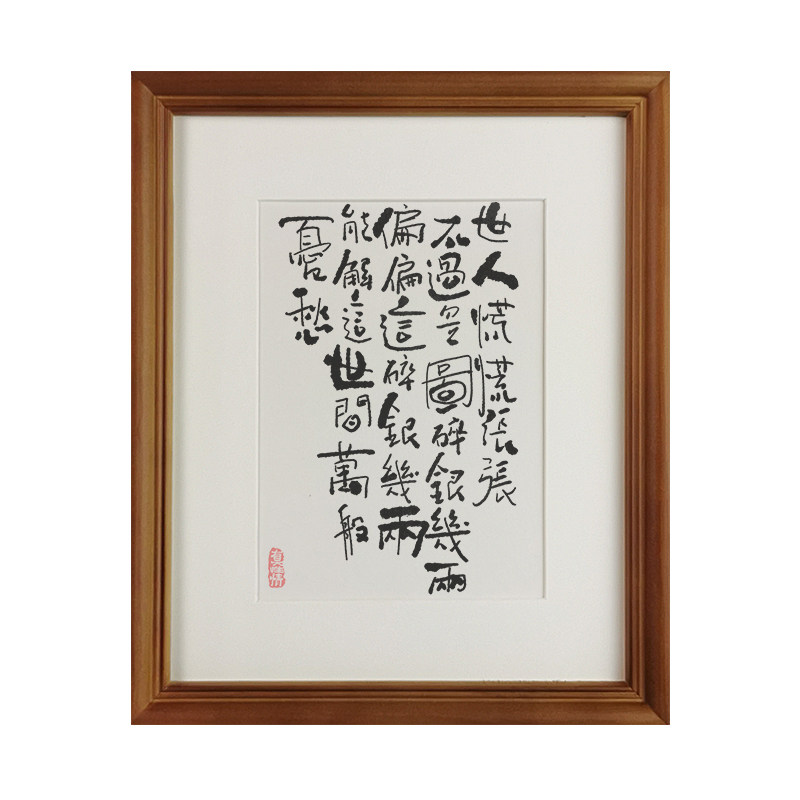 世人慌慌張張
不過是圖碎銀幾兩
偏偏這碎銀幾兩
能解這世間萬般
憂愁